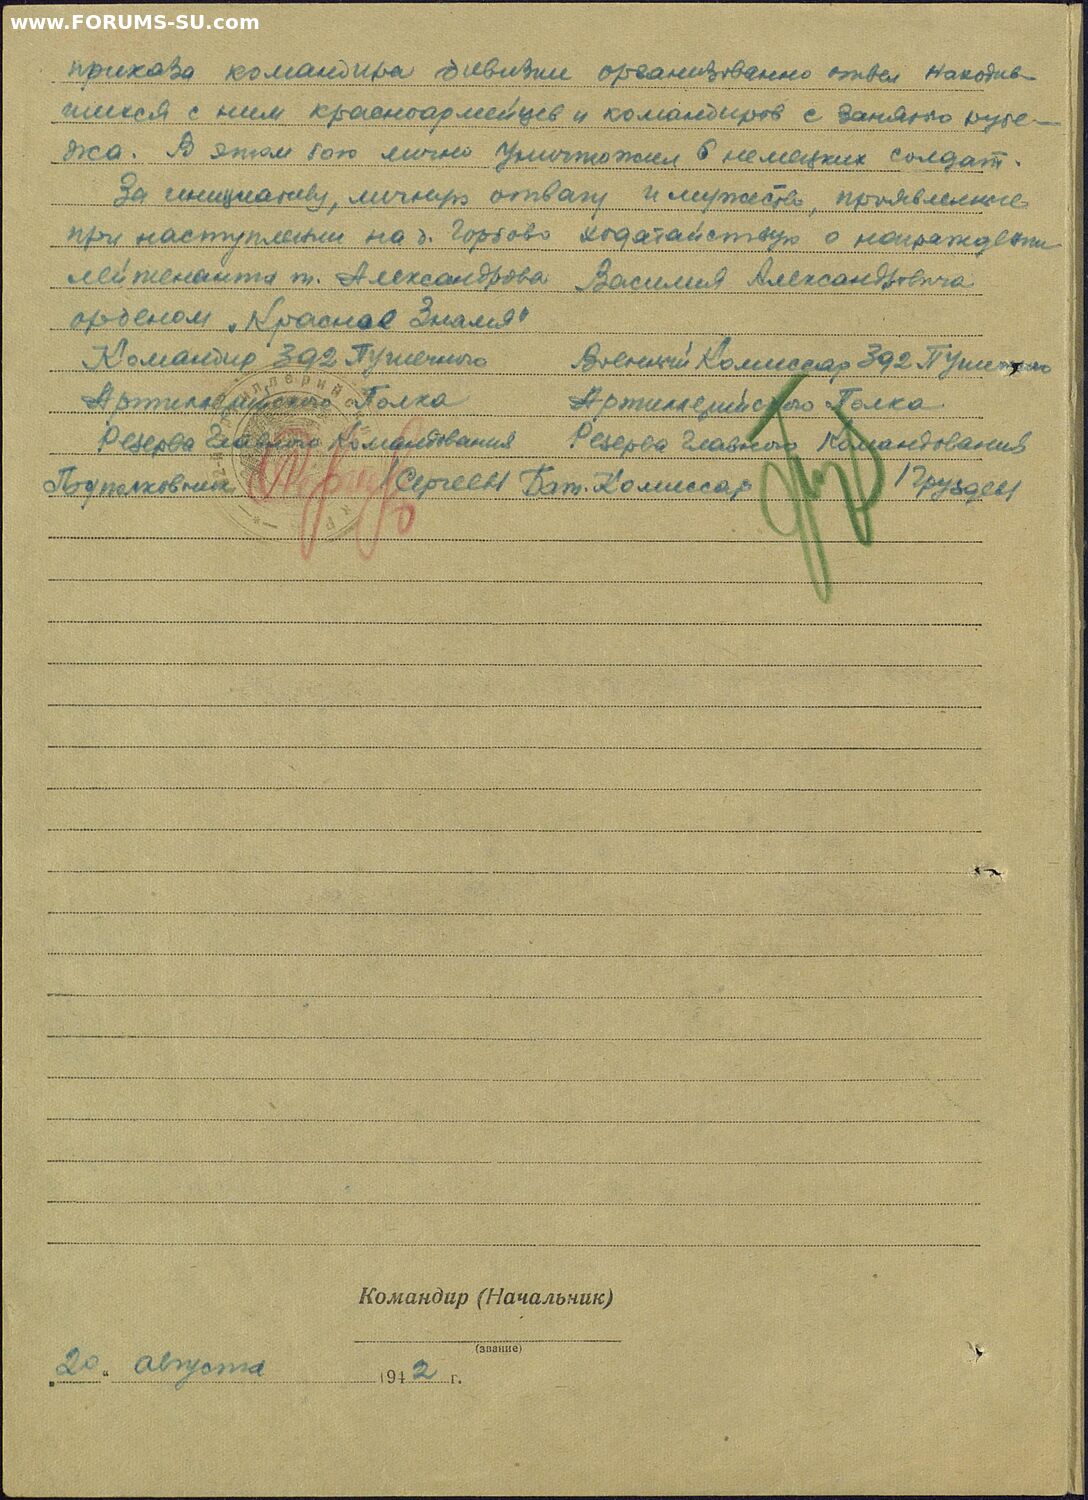 www.FORUMS-SU.com
приказа командира дивизии организованно отвел находив-
шихся с ним красноармейцев и командиров с занятого рубе-
жа. В этом бою лично уничтожил 6 немецких солдат.
За инициативу, личную отвагу и мужество, проявленные
при наступлении на д. Горбово ходатайствую о награждении
лейтенанта т. Александрова Василия Александровича
орденом „Красное Знамя"
Командир 392 Пушечного
Артиллерийского Полка
Резерва Главного Командования
Подполковник /Сергеев/
Военный Комиссар 392 Пушечного
Артиллерийского Полка
Резерва Главного Командования
Бат. Комиссар /Груздев/
Командир (Начальник)
(звание)
„20" августа 1942 г.